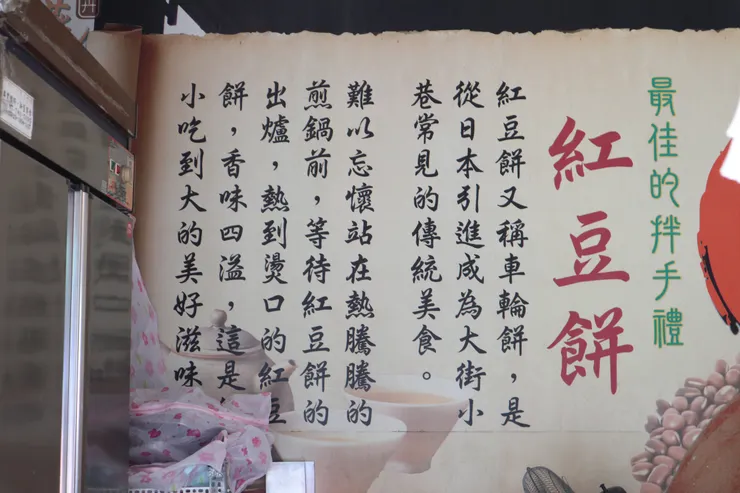 最佳的拌手禮
紅豆餅
紅豆餅又稱車輪餅，是
從日本引進成為大街小
巷常見的傳統美食。
難以忘懷站在熱騰騰的
煎鍋前，等待紅豆餅的
出爐，熱到燙口的紅豆
餅，香味四溢，這是
小吃到大的美好滋味